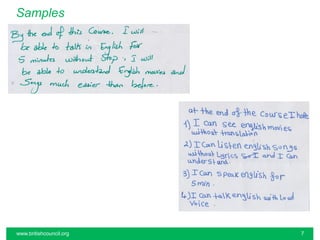 Samples
By the end of this Course, I will
be able to talk in English for
5 minutes without stop, I will
be able to understand English movies and
Songs much easier than before.
at the end of the course I hope
1) I can see english movies
without translation
2) I Can listen english songs
without lyrics and I can
understand.
3) I Can speak english for
5 min.
4) I can talk english with loud
voice.
www.britishcouncil.org
7